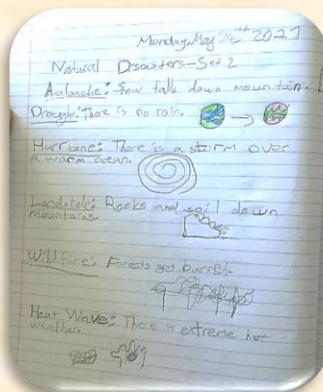 Monday, May 24th 2021
Natural Disasters-Set 2
Avalanche: Snow falls down mountain.
Drought: There is no rain.
Hurricane: There is a storm over
a warm ocean.
Landslide: Rocks and soil down
mountains.
Wildfire: Forests get burned.
Heat Wave: There is extreme hot
weather.